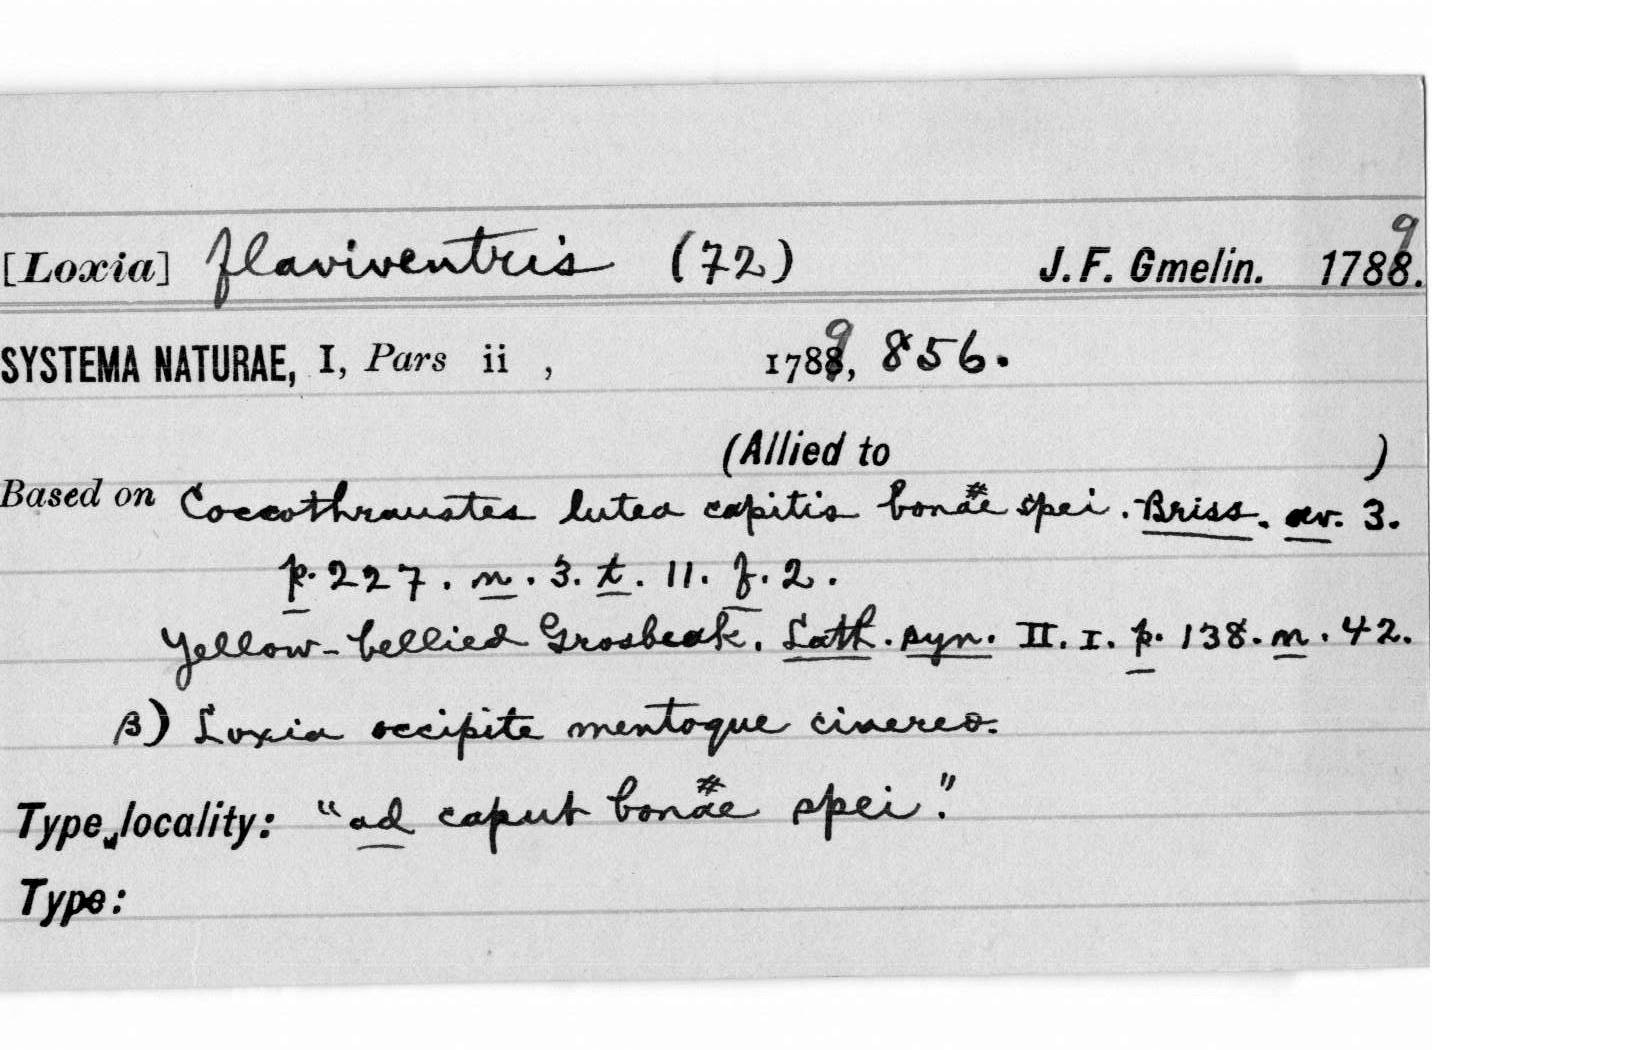 [Loxia] flaviventris (72) J. F. Gmelin. 1788. 9
SYSTEMA NATURAE, I, Pars ii , 1788, 9 856.
(Allied to )
Based on Coccothraustes lutea capitis bonae# spei. Briss. av. 3.
p. 227. n. 3. t. 11. f. 2.
Yellow-bellied Grosbeak. Lath. syn. II. I. p. 138. n. 42.
β) Loxia occipite mentoque cinereo.
Type locality: "ad caput bonae# spei."
Type: